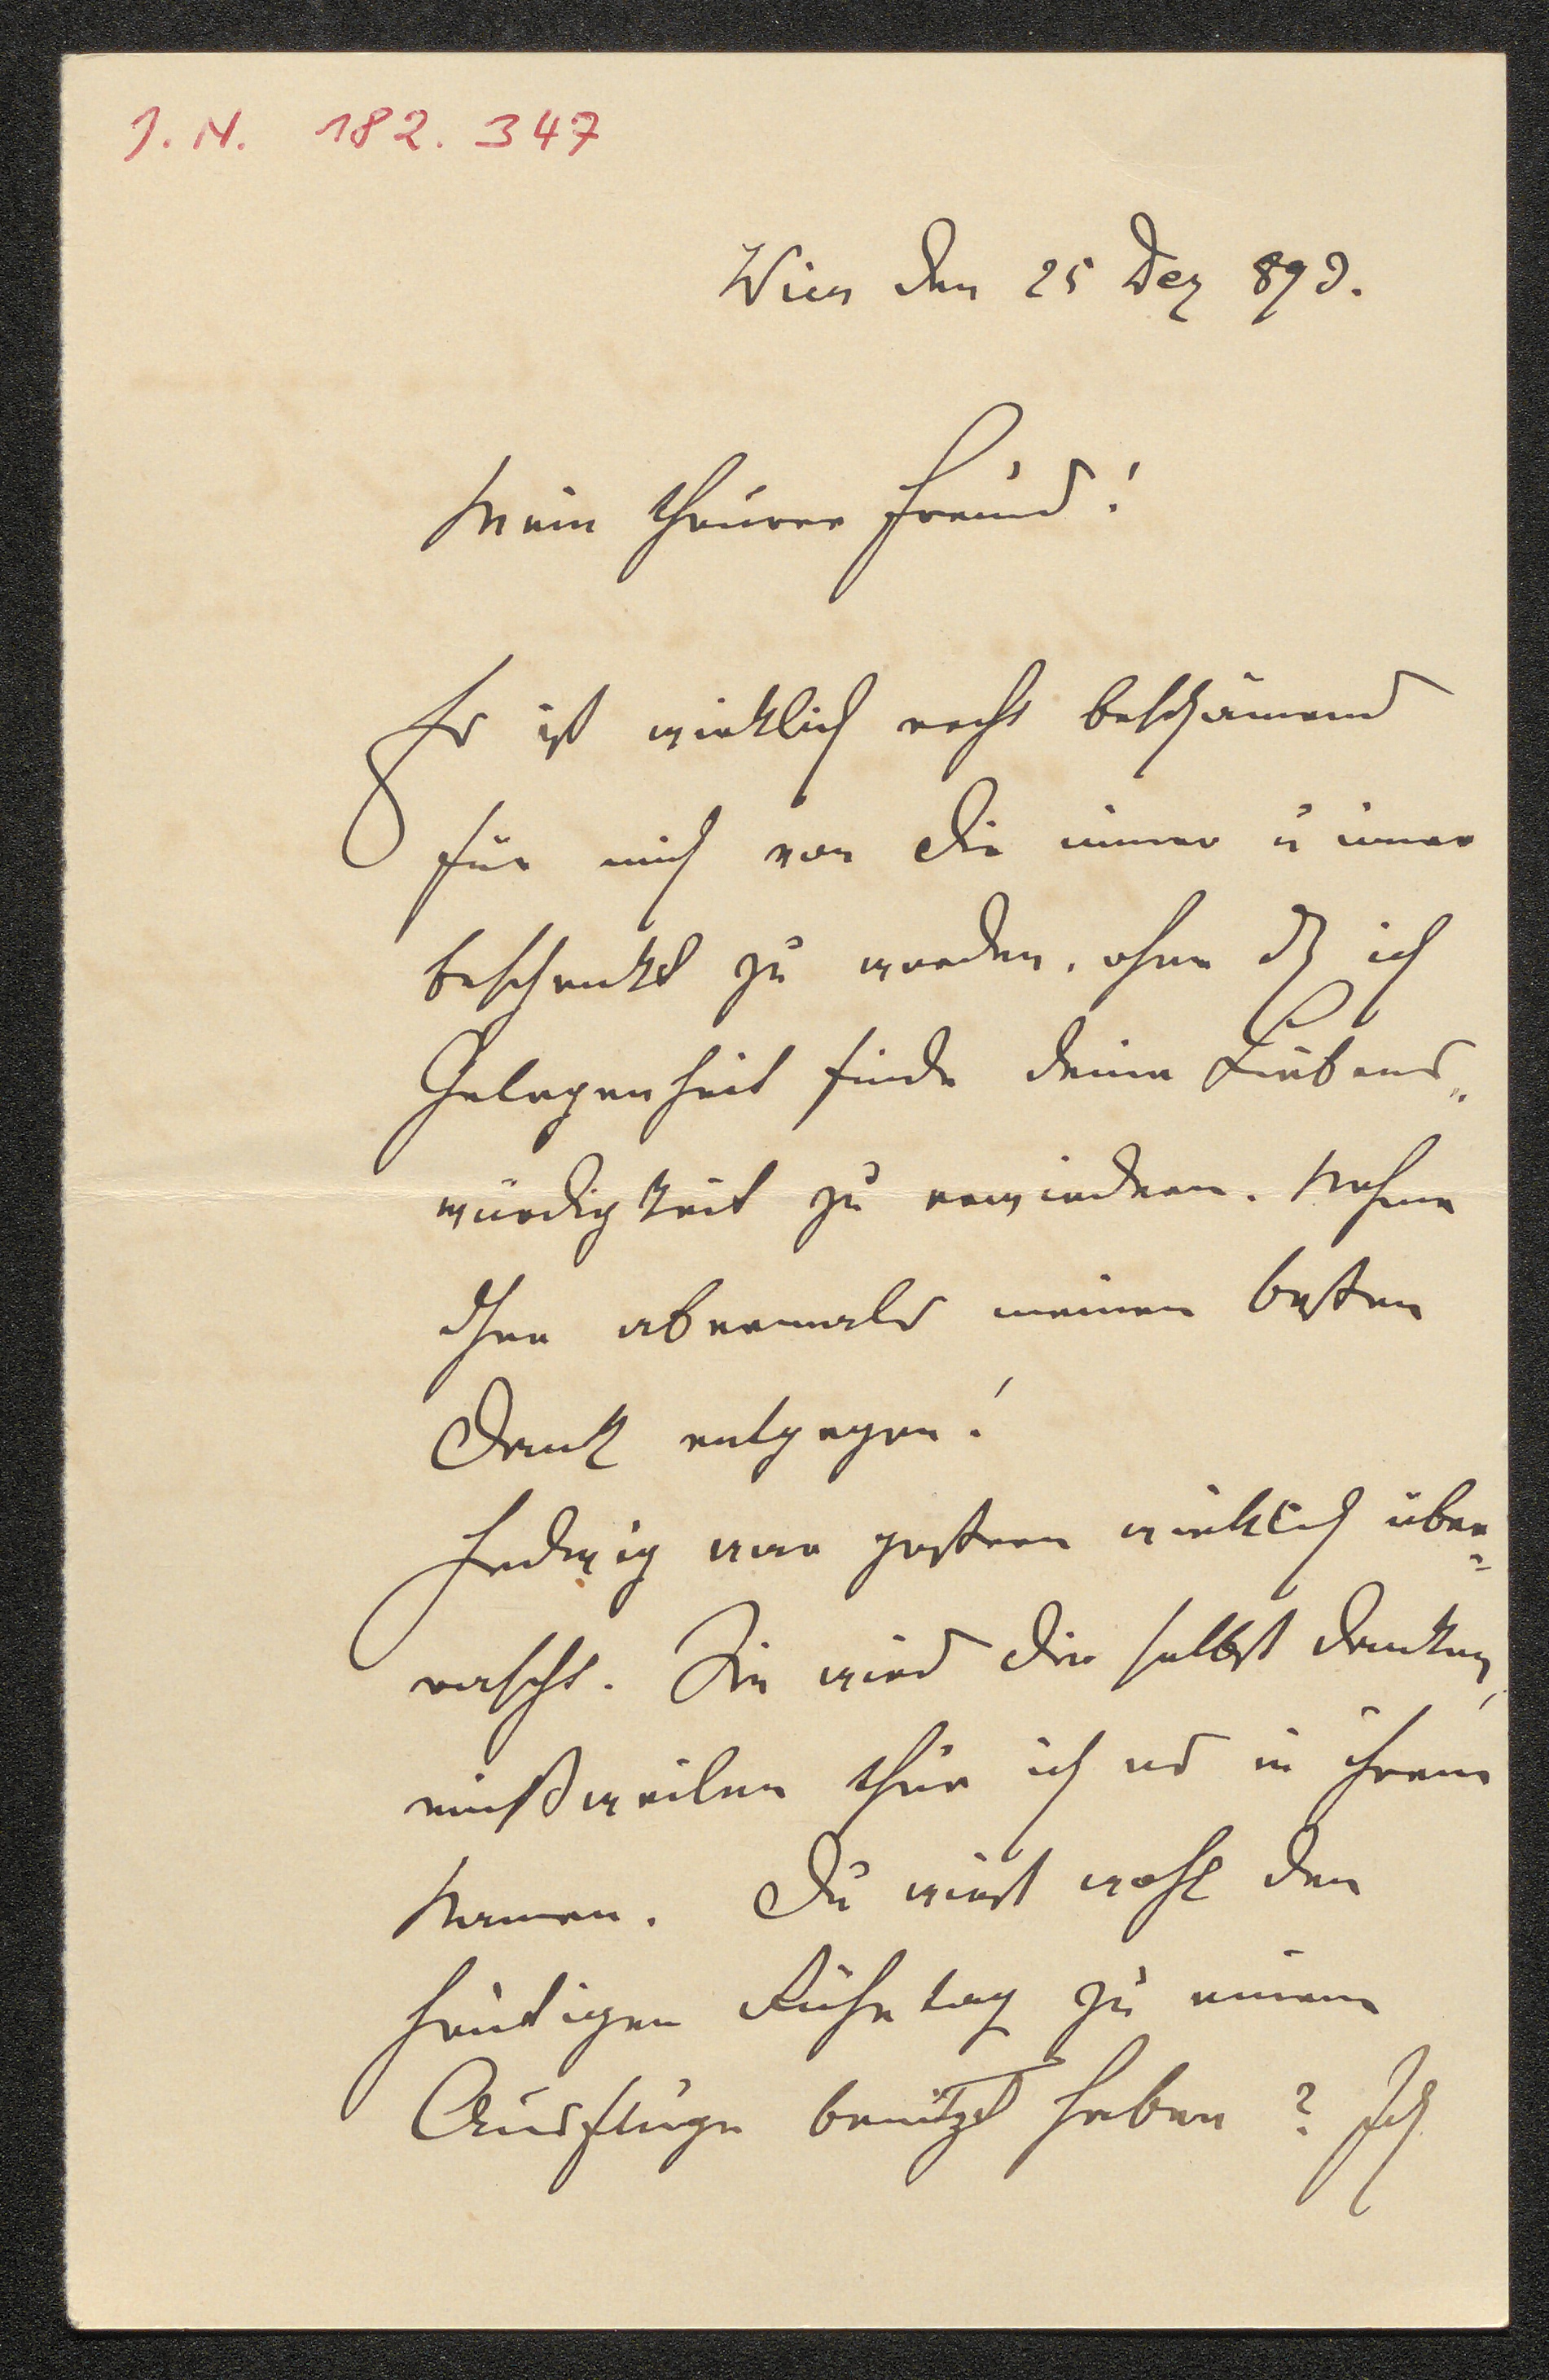 J. N. 182.347
Wien den 25 Dez 893.
Mein theurer Freund!
Es ist wirklich recht beschämend
für mich von Dir immer u immer
beschenkt zu werden, ohne dß ich
Gelegenheit finde deine Liebens„
würdigkeit zu erwiedern. Nehme
aber abermals meinen besten
Dank entgegen!
Hedwig war gestern wirklich über=
rascht. Sie wird Dir selbst danken,
einstweilen thue ich es in ihrem
Namen. Du wirst wohl den
heutigen Ruhetag zu einem
Ausfluge benützt haben? Ich